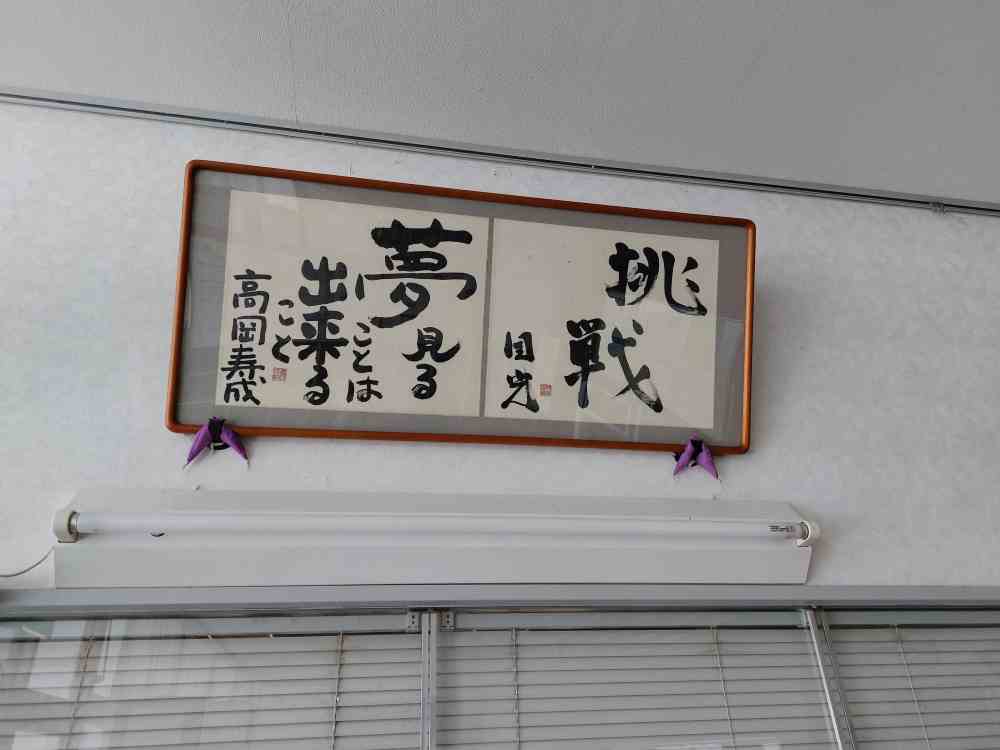 挑戦
国光
夢見る
ことは
出来る
こと
高岡寿成